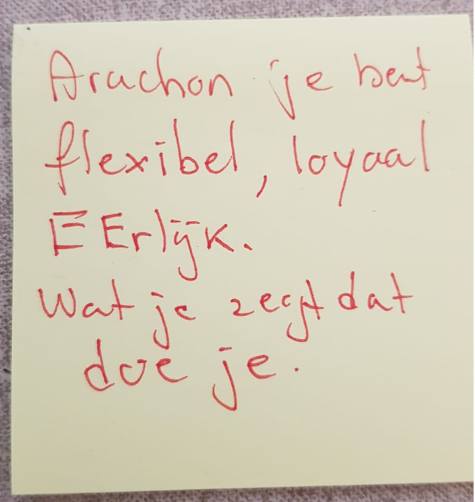 Aruchon je bent
flexibel, loyaal
EErlijk.
Wat je zegt dat
doe je.